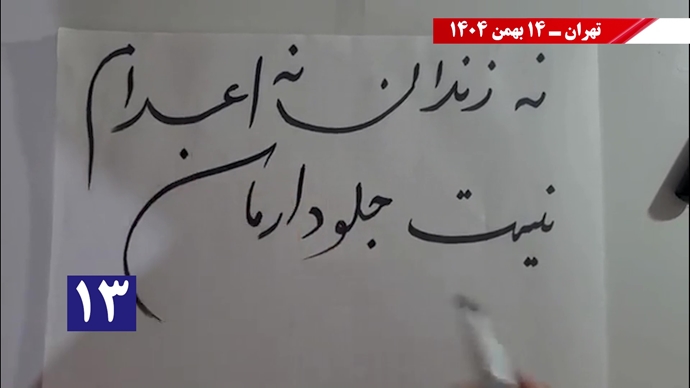 تهران ـ ۱۴ بهمن ۱۴۰۴
نه زندان نه اعدام
نیست جلودارمان
۱۳